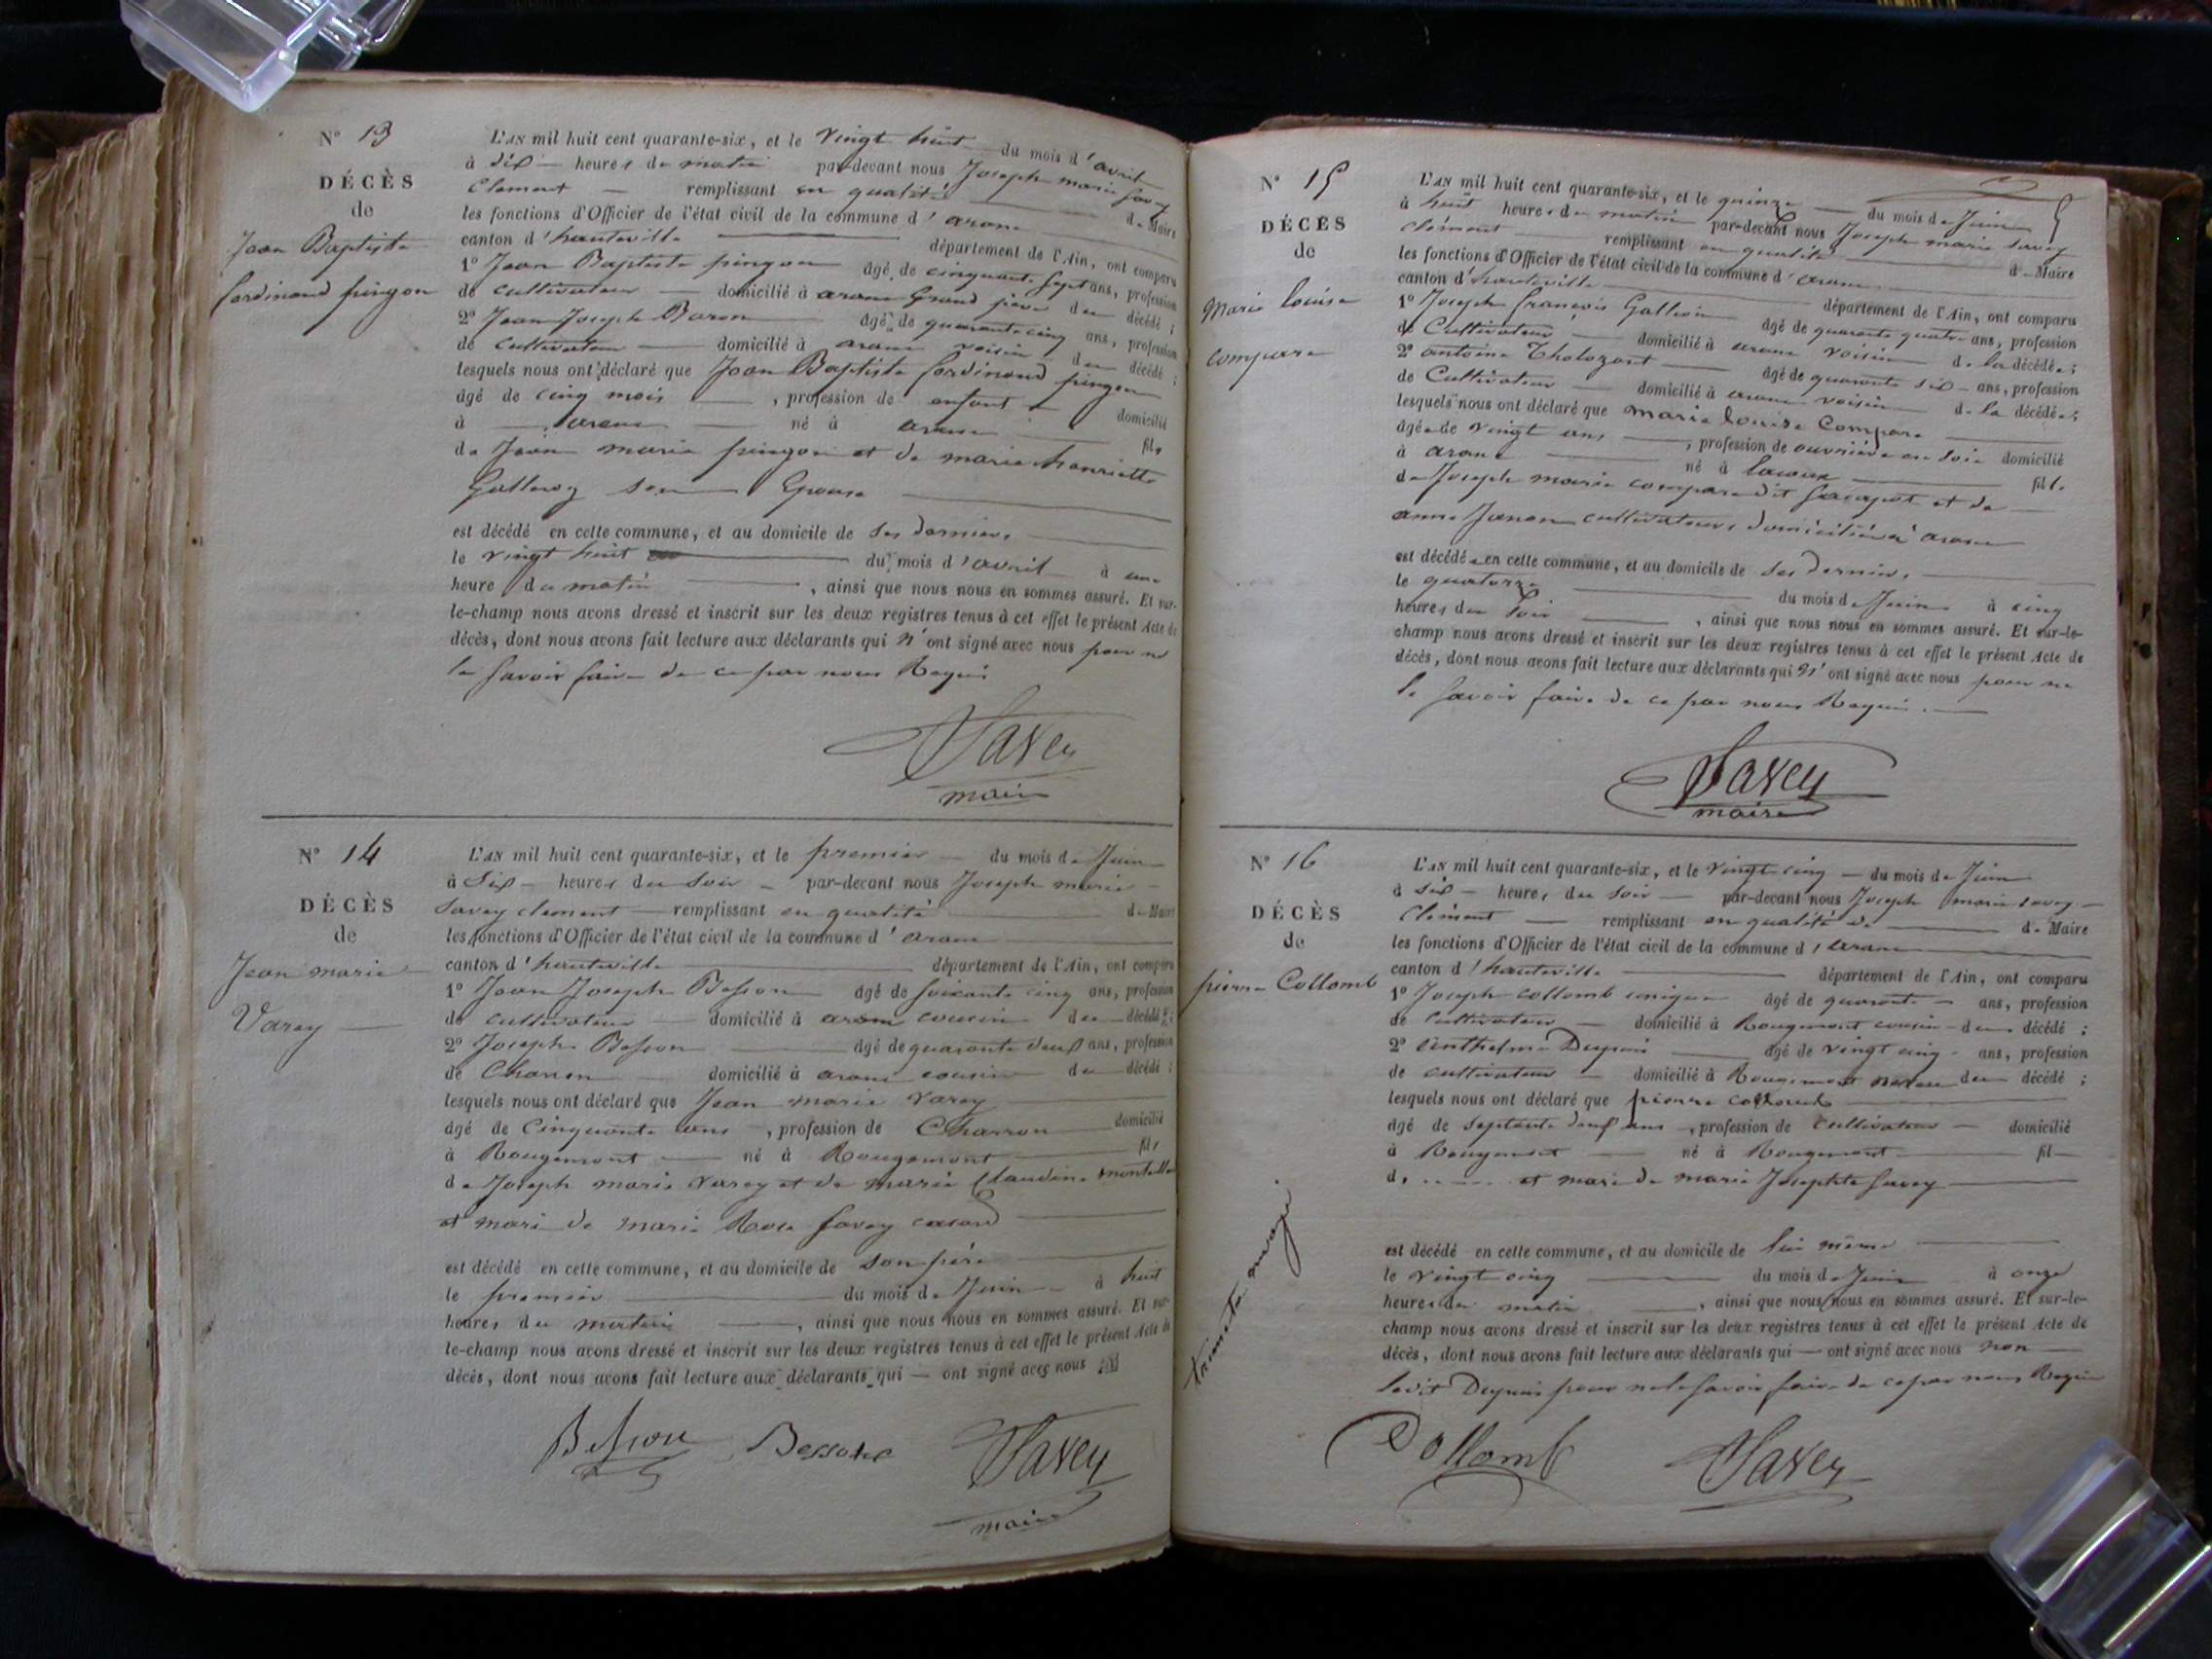 N° 13
DÉCÈS
de
Jean Baptiste
ferdinand pingon
L'AN mil huit cent quarante-six, et le vingt huit du mois d'avril
à six heures du matin par-devant nous Joseph marie Savey
Clement remplissant en qualité de Maire
les fonctions d'Officier de l'état civil de la commune d'arane
canton d'hauteville département de l'Ain, ont comparu
1° Jean Baptiste pingon âgé de cinquante sept ans, profession
de cultivateur domicilié à arane Grand père du décédé ;
2° Jean Joseph Baron âgé de quarante cinq ans, profession
de cultivateur domicilié à arane voisin du décédé ;
lesquels nous ont déclaré que Jean Baptiste ferdinand pingon
âgé de cinq mois , profession de enfant domicilié
à arane né à arane fils
de Jean marie pingon et de marie henriette
Gallevoy son Epouse
est décédé en cette commune, et au domicile de ses derniers
le vingt huit du mois d'avril à une
heure du matin , ainsi que nous nous en sommes assuré. Et sur-
le-champ nous avons dressé et inscrit sur les deux registres tenus à cet effet le présent Acte de
décès, dont nous avons fait lecture aux déclarants qui n'ont signé avec nous pour ne
le savoir faire de ce par nous Requis
Savey
maire
N° 14
DÉCÈS
de
Jean marie
Varey
L'AN mil huit cent quarante-six, et le premier du mois de Juin
à six heures du soir par-devant nous Joseph marie
Savey clement remplissant en qualité de Maire
les fonctions d'Officier de l'état civil de la commune d'arane
canton d'hauteville département de l'Ain, ont comparu
1° Jean Joseph Besson âgé de soixante cinq ans, profession
de cultivateur domicilié à arane cousin du décédé ;
2° Joseph Besson âgé de quarante deux ans, profession
de Charron domicilié à arane cousin du décédé ;
lesquels nous ont déclaré que Jean marie varey
âgé de Cinquante ans , profession de Charron domicilié
à Rougemont né à Rougemont fils
de Joseph marie varey et de marie Claudine
et mari de marie Rose Savey
est décédé en cette commune, et au domicile de son père
le premier du mois de Juin à huit
heures du matin , ainsi que nous nous en sommes assuré. Et sur-
le-champ nous avons dressé et inscrit sur les deux registres tenus à cet effet le présent Acte de
décès, dont nous avons fait lecture aux déclarants qui ont signé avec nous
Besson Besson Savey
maire
N° 15
DÉCÈS
de
Marie louise
compare
L'AN mil huit cent quarante-six, et le quinze du mois de Juin
à huit heures du matin par-devant nous Joseph marie Savey
clément remplissant en qualité de Maire
les fonctions d'Officier de l'état civil de la commune d'arane
canton d'hauteville département de l'Ain, ont comparu
1° Joseph françois Gallion âgé de quarante quatre ans, profession
de Cultivateur domicilié à arane voisin de la décédée ;
2° antoine Tholozant âgé de quarante six ans, profession
de Cultivateur domicilié à arane voisin de la décédée ;
lesquels nous ont déclaré que marie louise Compare
âgée de vingt ans , profession de ouvrière en soie domicilié
à arane né à lacoux fille
de Joseph marie compare dit et de
anne Janon cultivateurs domiciliés à arane
est décédée en cette commune, et au domicile de ses derniers
le quatorze du mois de Juin à cinq
heures du soir , ainsi que nous nous en sommes assuré. Et sur-le-
champ nous avons dressé et inscrit sur les deux registres tenus à cet effet le présent Acte de
décès, dont nous avons fait lecture aux déclarants qui n'ont signé avec nous pour ne
le savoir faire de ce par nous Requis.
Savey
maire
N° 16
DÉCÈS
de
pierre Collomb
L'AN mil huit cent quarante-six, et le vingt cinq du mois de Juin
à six heures du soir par-devant nous Joseph marie savey
Clément remplissant en qualité de de Maire
les fonctions d'Officier de l'état civil de la commune d'arane
canton d'hauteville département de l'Ain, ont comparu
1° Joseph collomb âgé de quarante ans, profession
de Cultivateur domicilié à Rougemont cousin du décédé ;
2° Anthelme Dupuis âgé de vingt cinq ans, profession
de cultivateur domicilié à Rougemont neveu du décédé ;
lesquels nous ont déclaré que pierre collomb
âgé de septante neuf ans , profession de cultivateur domicilié
à Rougemont né à Rougemont fil
d. et mari de marie Josephte Savey
est décédé en cette commune, et au domicile de lui même
le vingt cinq du mois de Juin à onze
heures du matin , ainsi que nous nous en sommes assuré. Et sur-le-
champ nous avons dressé et inscrit sur les deux registres tenus à cet effet le présent Acte de
décès, dont nous avons fait lecture aux déclarants qui ont signé avec nous non
ledit Dupuis pour ne le savoir faire de ce par nous Requis
Collomb Savey